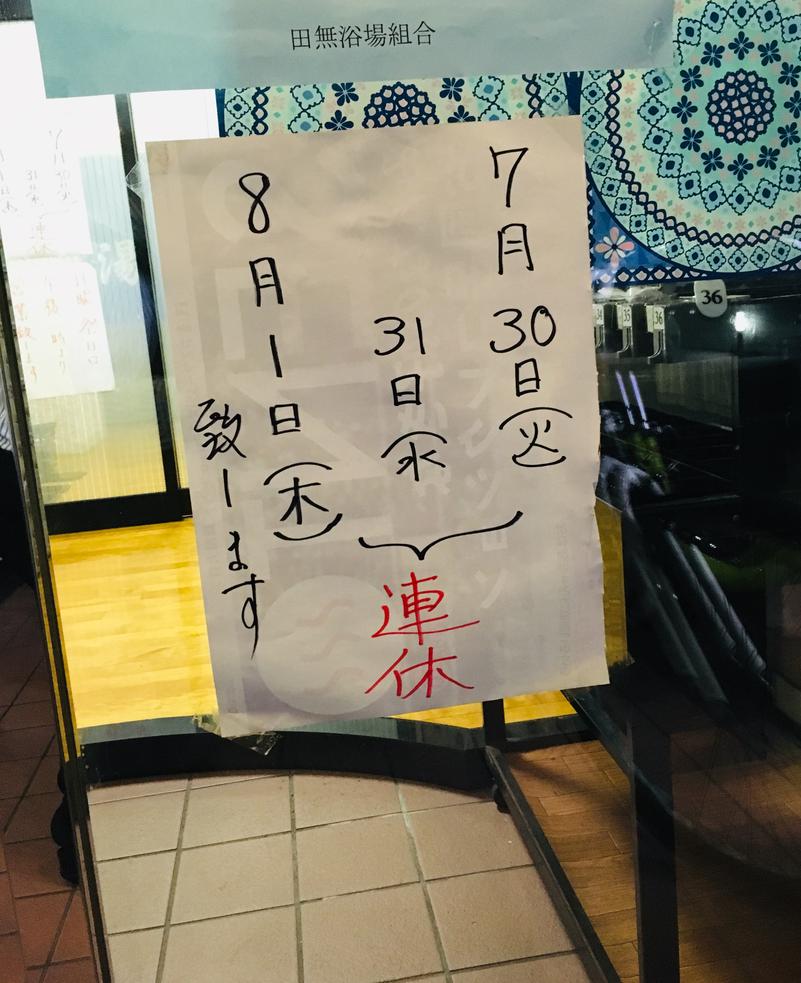 田無浴場組合
7月30日(火)
31日(水)
連休
8月1日(木)
致します
36
35
36